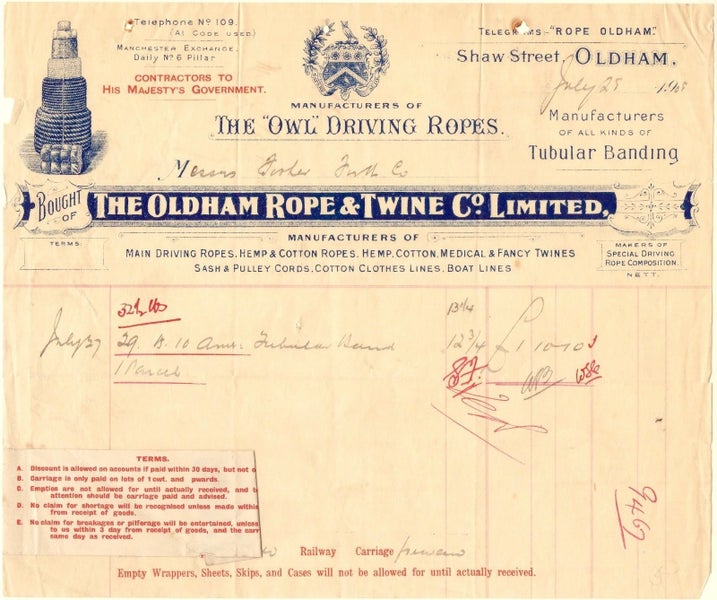 Telephone Nº 109.
(A1 Code used)
Manchester Exchange.
Daily Nº 6 Pillar
Contractors to
His Majesty's Government.
Telegrams-"Rope Oldham."
Shaw Street, Oldham,
July 29 190
Manufacturers of
The "Owl" Driving Ropes.
Manufacturers
of all kinds of
Tubular Banding
Messrs
Bought of
The Oldham Rope & Twine Co. Limited,
Terms
Manufacturers of
Main Driving Ropes, Hemp & Cotton Ropes. Hemp, Cotton, Medical & Fancy Twines
Sash & Pulley Cords, Cotton Clothes Lines, Boat Lines
Makers of
Special Driving
Rope Composition.
Nett.
32½ lbs
July 27 29 10 Tubular Band 12¾ £1
1 Parcel
TERMS.
A. Discount is allowed on accounts if paid within 30 days, but not
B. Carriage is only paid on lots of 1 cwt. and pwards.
C. Empties are not allowed for until actually received, and
attention should be carriage paid and advised.
D. No claim for shortage will be recognised unless made within
from receipt of goods.
E. No claim for breakages or pilferage will be entertained, unless
to us within 3 day from receipt of goods, and the
same day as received.
9467
Railway Carriage forward
Empty Wrappers, Sheets, Skips, and Cases will not be allowed for until actually received.